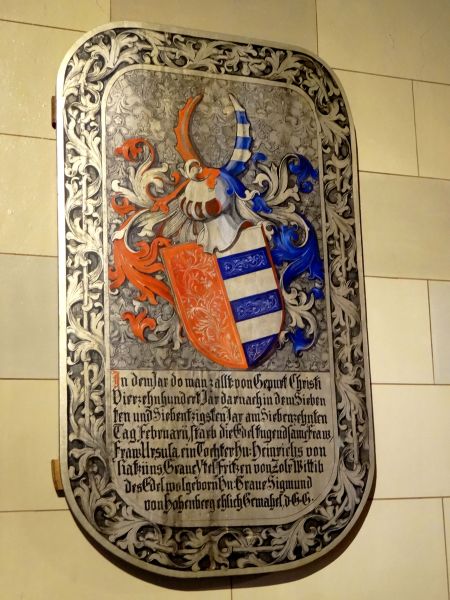 In dem Jar do man zallt von Gepurt Christi
Vierzehnhundert Jar darnach in dem Sieben
ten und Siebentzigsten Jar am Siebenzehnten
Tag Februarii starb die Edel tugendsame Fraw
Fraw Ursula, ein Tochter Hn: Heinrichs von
Razüns, Grave Ytel Fritzen von Zolr Wittib
des Edel wolgeborn Hn: Grave Sigmund
von Hohenberg ehlich Gemahel, d. G. G.